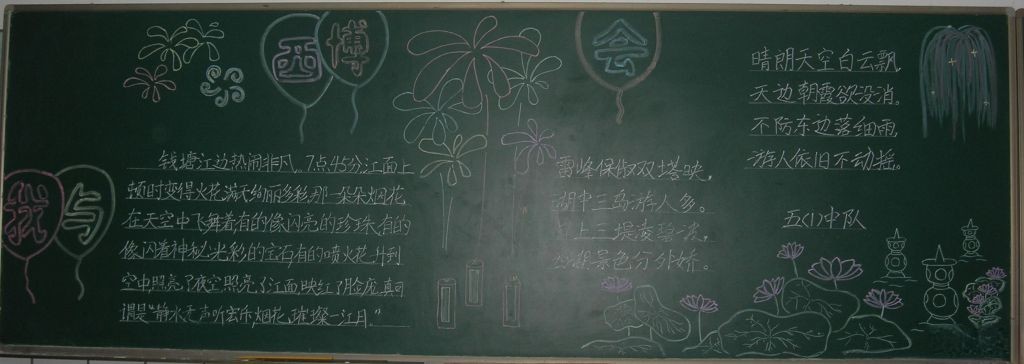 我与
西博
会
钱塘江边热闹非凡。7点45分江面上
顿时变得火花满天绚丽多彩,那一朵朵烟花
在天空中飞舞着有的像闪亮的珍珠,有的
像闪着神秘光彩的宝石,有的喷火花,升到
空中照亮了夜空照亮了江面映红了脸庞,真可
谓是"静水无声听宏乐,烟花璀璨一江月。"
雷峰保俶双塔映,
湖中三岛游人多。
上三堤
景色分外娇。
晴朗天空白云飘,
天边朝霞欲没消。
不防东边落细雨,
游人依旧不动摇。
五(1)中队